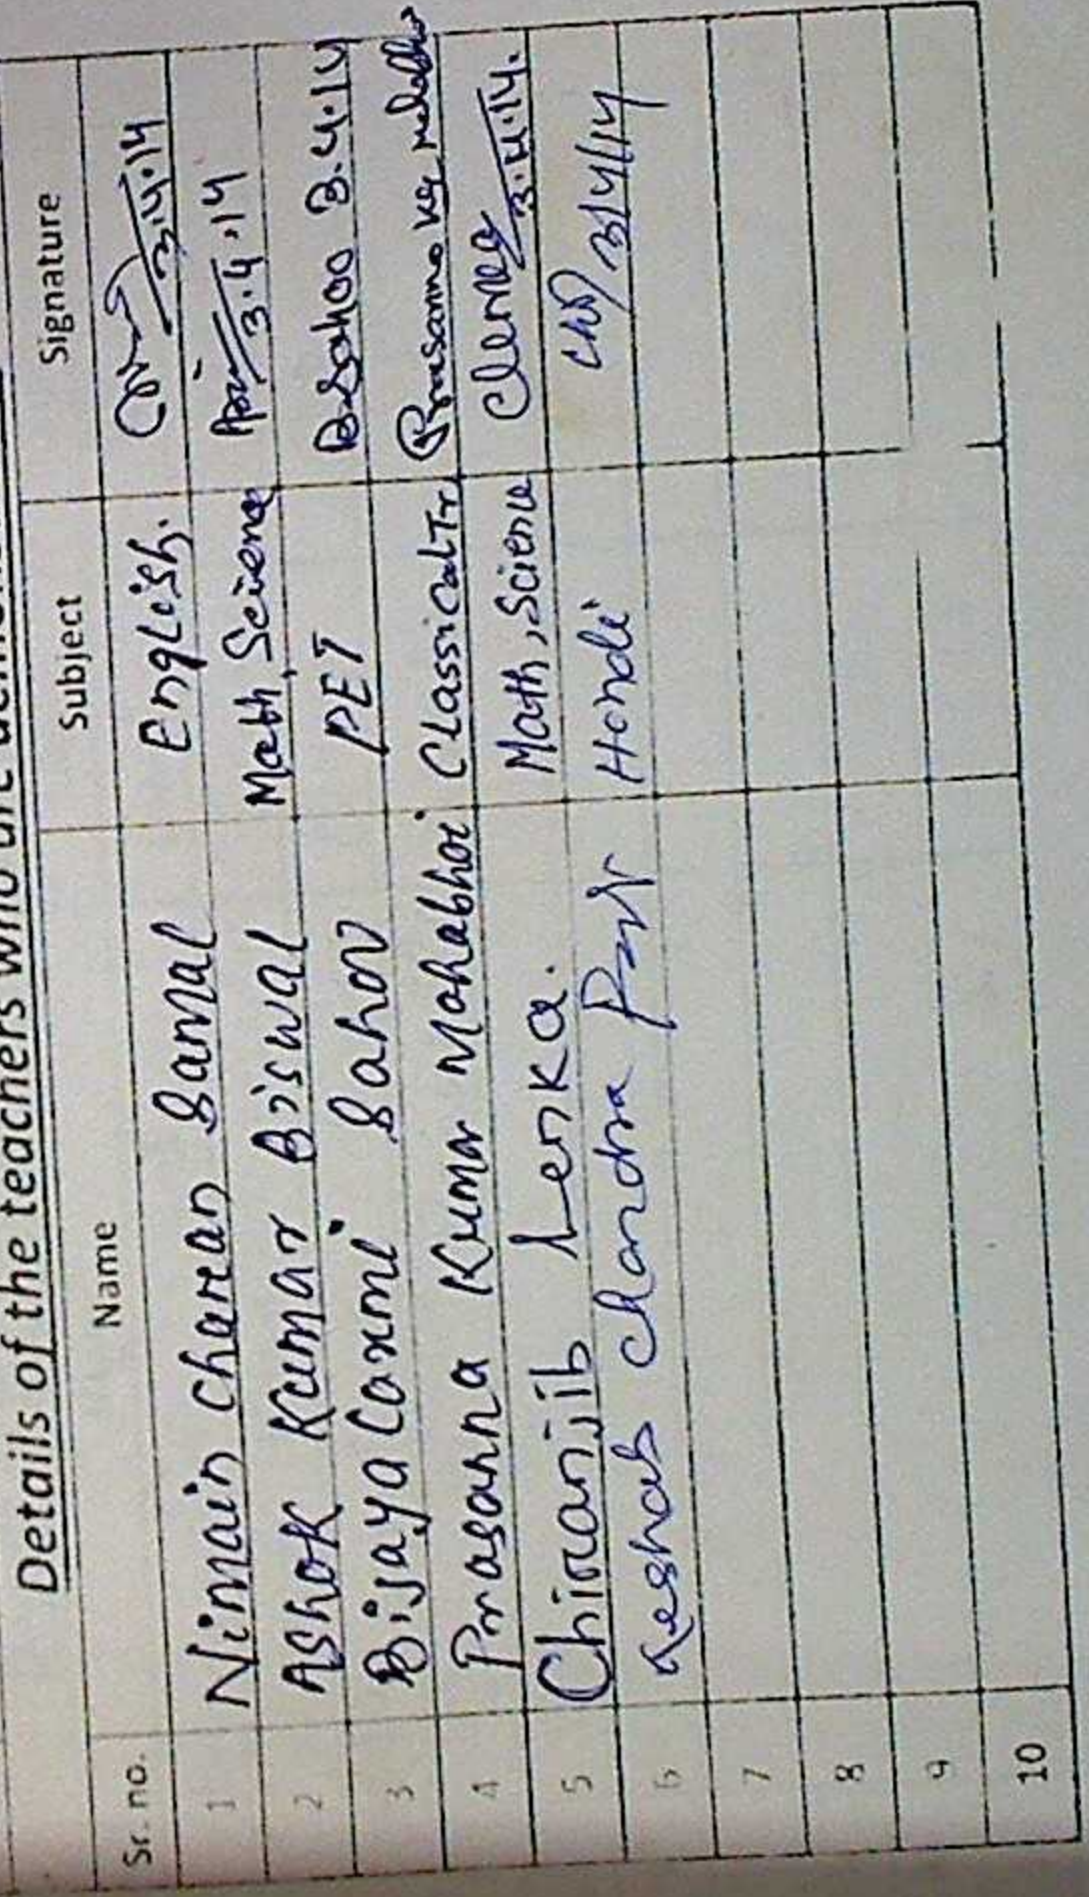 Details of the teachers who are
Sr. no. Name Subject Signature
1 Nimain Charan Samal English. 3.4.14
2 Ashok Kumar Biswal Math, Science 3.4.14
3 Bijaya Laxmi Sahoo PET B Sahoo 3.4.14
4 Prasanna Kumar Mahabhoi Classical Tr. Prasanna Kr Mahabhoi
5 Chiranjib Lenka. Math, Science CLenka 3.4.14.
6 Keshab Chandra Hindi 3/4/14
7
8
9
10